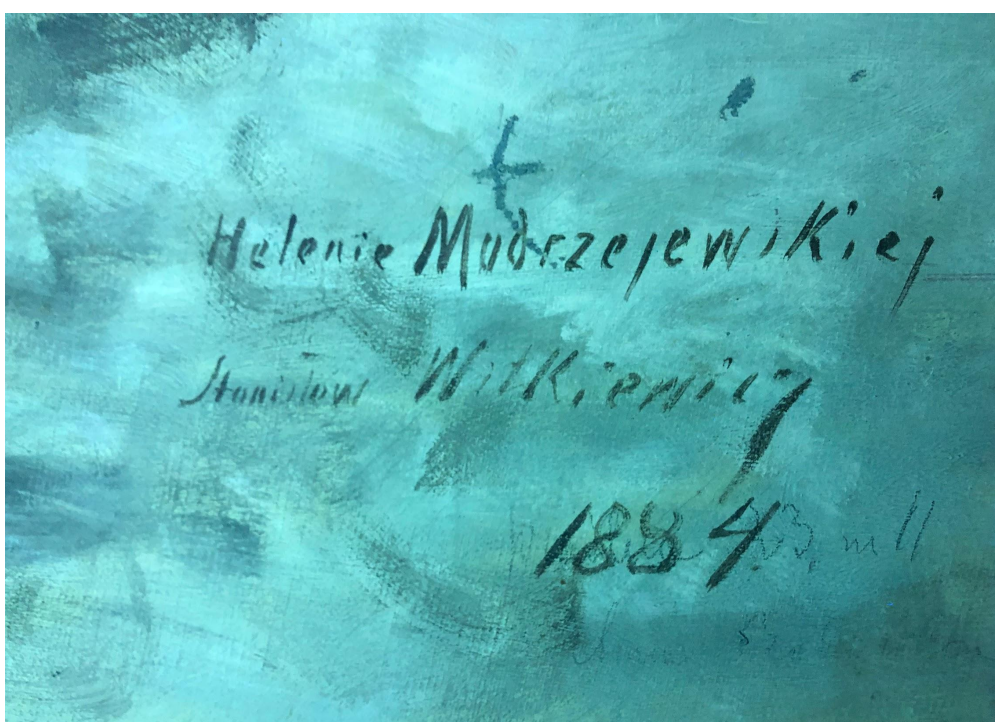 Helenie Modrzejewskiej
Stanisław Witkiewicz
1884